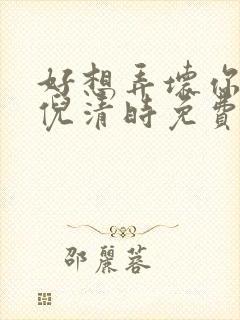 好想弄壞你
倪清時免費
邵麗蓉